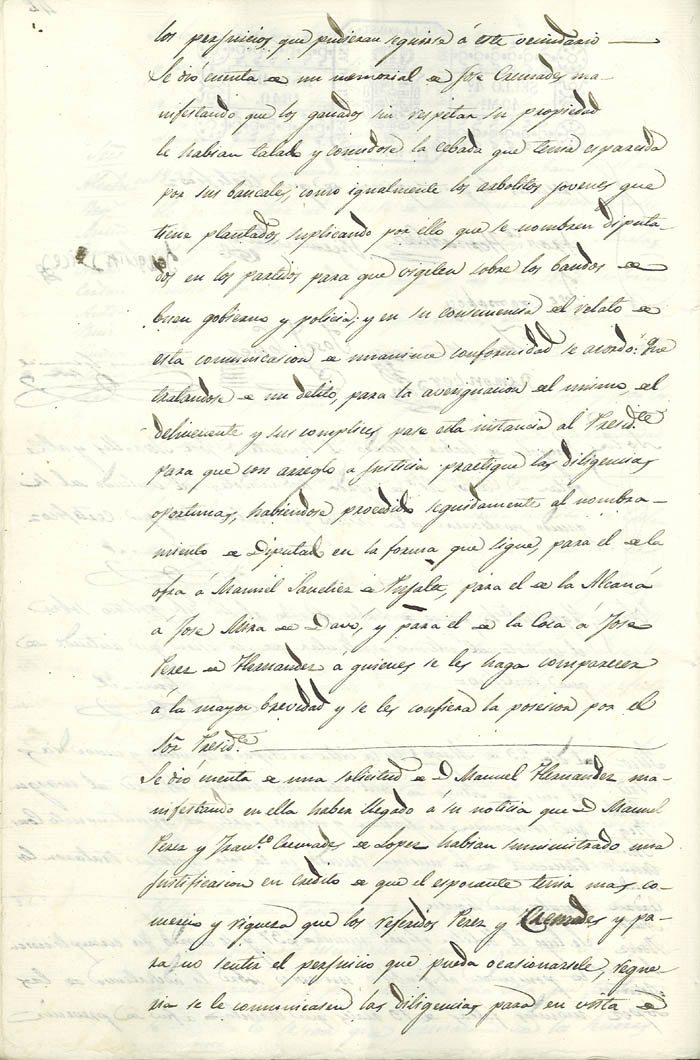 los perjuicios que pudieran seguirse á este vecindario
Se dió cuenta de un memorial de Jose Cremades ma-
nifestando que los ganados sin respetar su propiedad
le habian talado y comidose la cebada que tenia esparcida
por sus bancales, como igualmente los arbolitos jovenes que
tiene plantados, suplicando por ello que se nombren diputa-
dos en los partidos para que vigilen sobre los bandos de
buen gobierno y policia; y en su consecuencia el relato de
esta comunicacion de unanime conformidad se acordó: Que
tratandose de un delito, para la averiguacion del mismo, del
delincuente y sus complices, pase esta instancia al Presid.te
para que con arreglo a justicia practique las diligencias
oportunas, habiendose procedido seguidamente al nombra-
miento de Diputad en la forma que sigue, para el de la
ofra á Manuel Sanchez de Pujalte, para el de la Alcaná
á Jose Mira de Davó, y para el de la Coca á Jose
Perez de Hernandez á quienes se les haga comparecer
á la mayor brevedad y se les confiera la posesion por el
Sõr Presid.te
Se dió cuenta de una solicitud de D Manuel Hernandez ma-
nifestando en ella haber llegado á su noticia que D Manuel
Perez y Fran.co Cremades de Lopez habian suministrado una
justificacion en credito de que el esponente tenia mas co-
mercio y riqueza que los referidos Perez y Cremades y pa-
ra no sentir el perjuicio que pueda ocasionarsele, reque
ria se le comunicasen las diligencias para en vista de